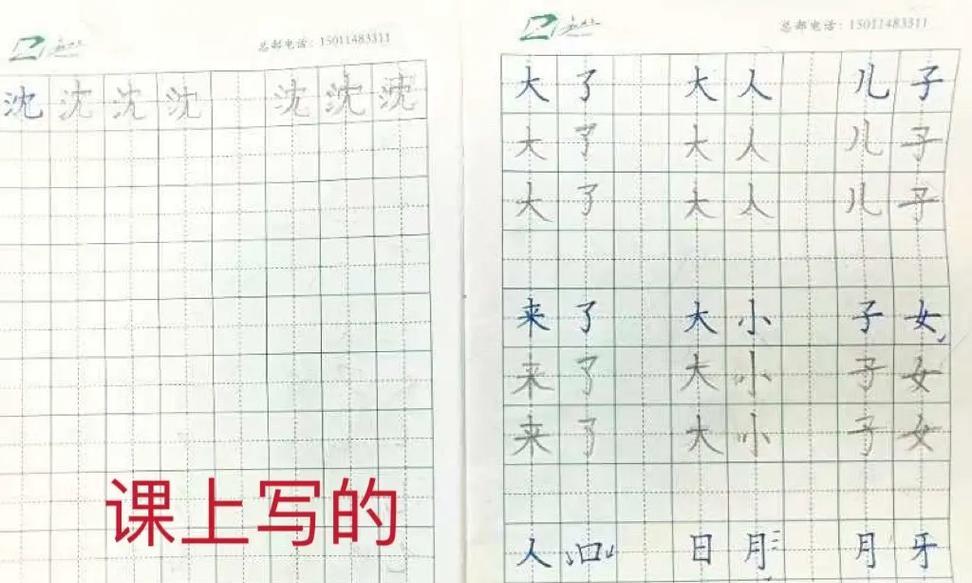 总部电话：15011483311
沈 沈 沈 沈 沈 沈 沈
课上写的
总部电话：15011483311
大了 大人 儿子
大了 大人 儿子
大了 大人 儿子
来了 大小 子女
来了 大小 子女
来了 大小 子女
人口 日月 月牙